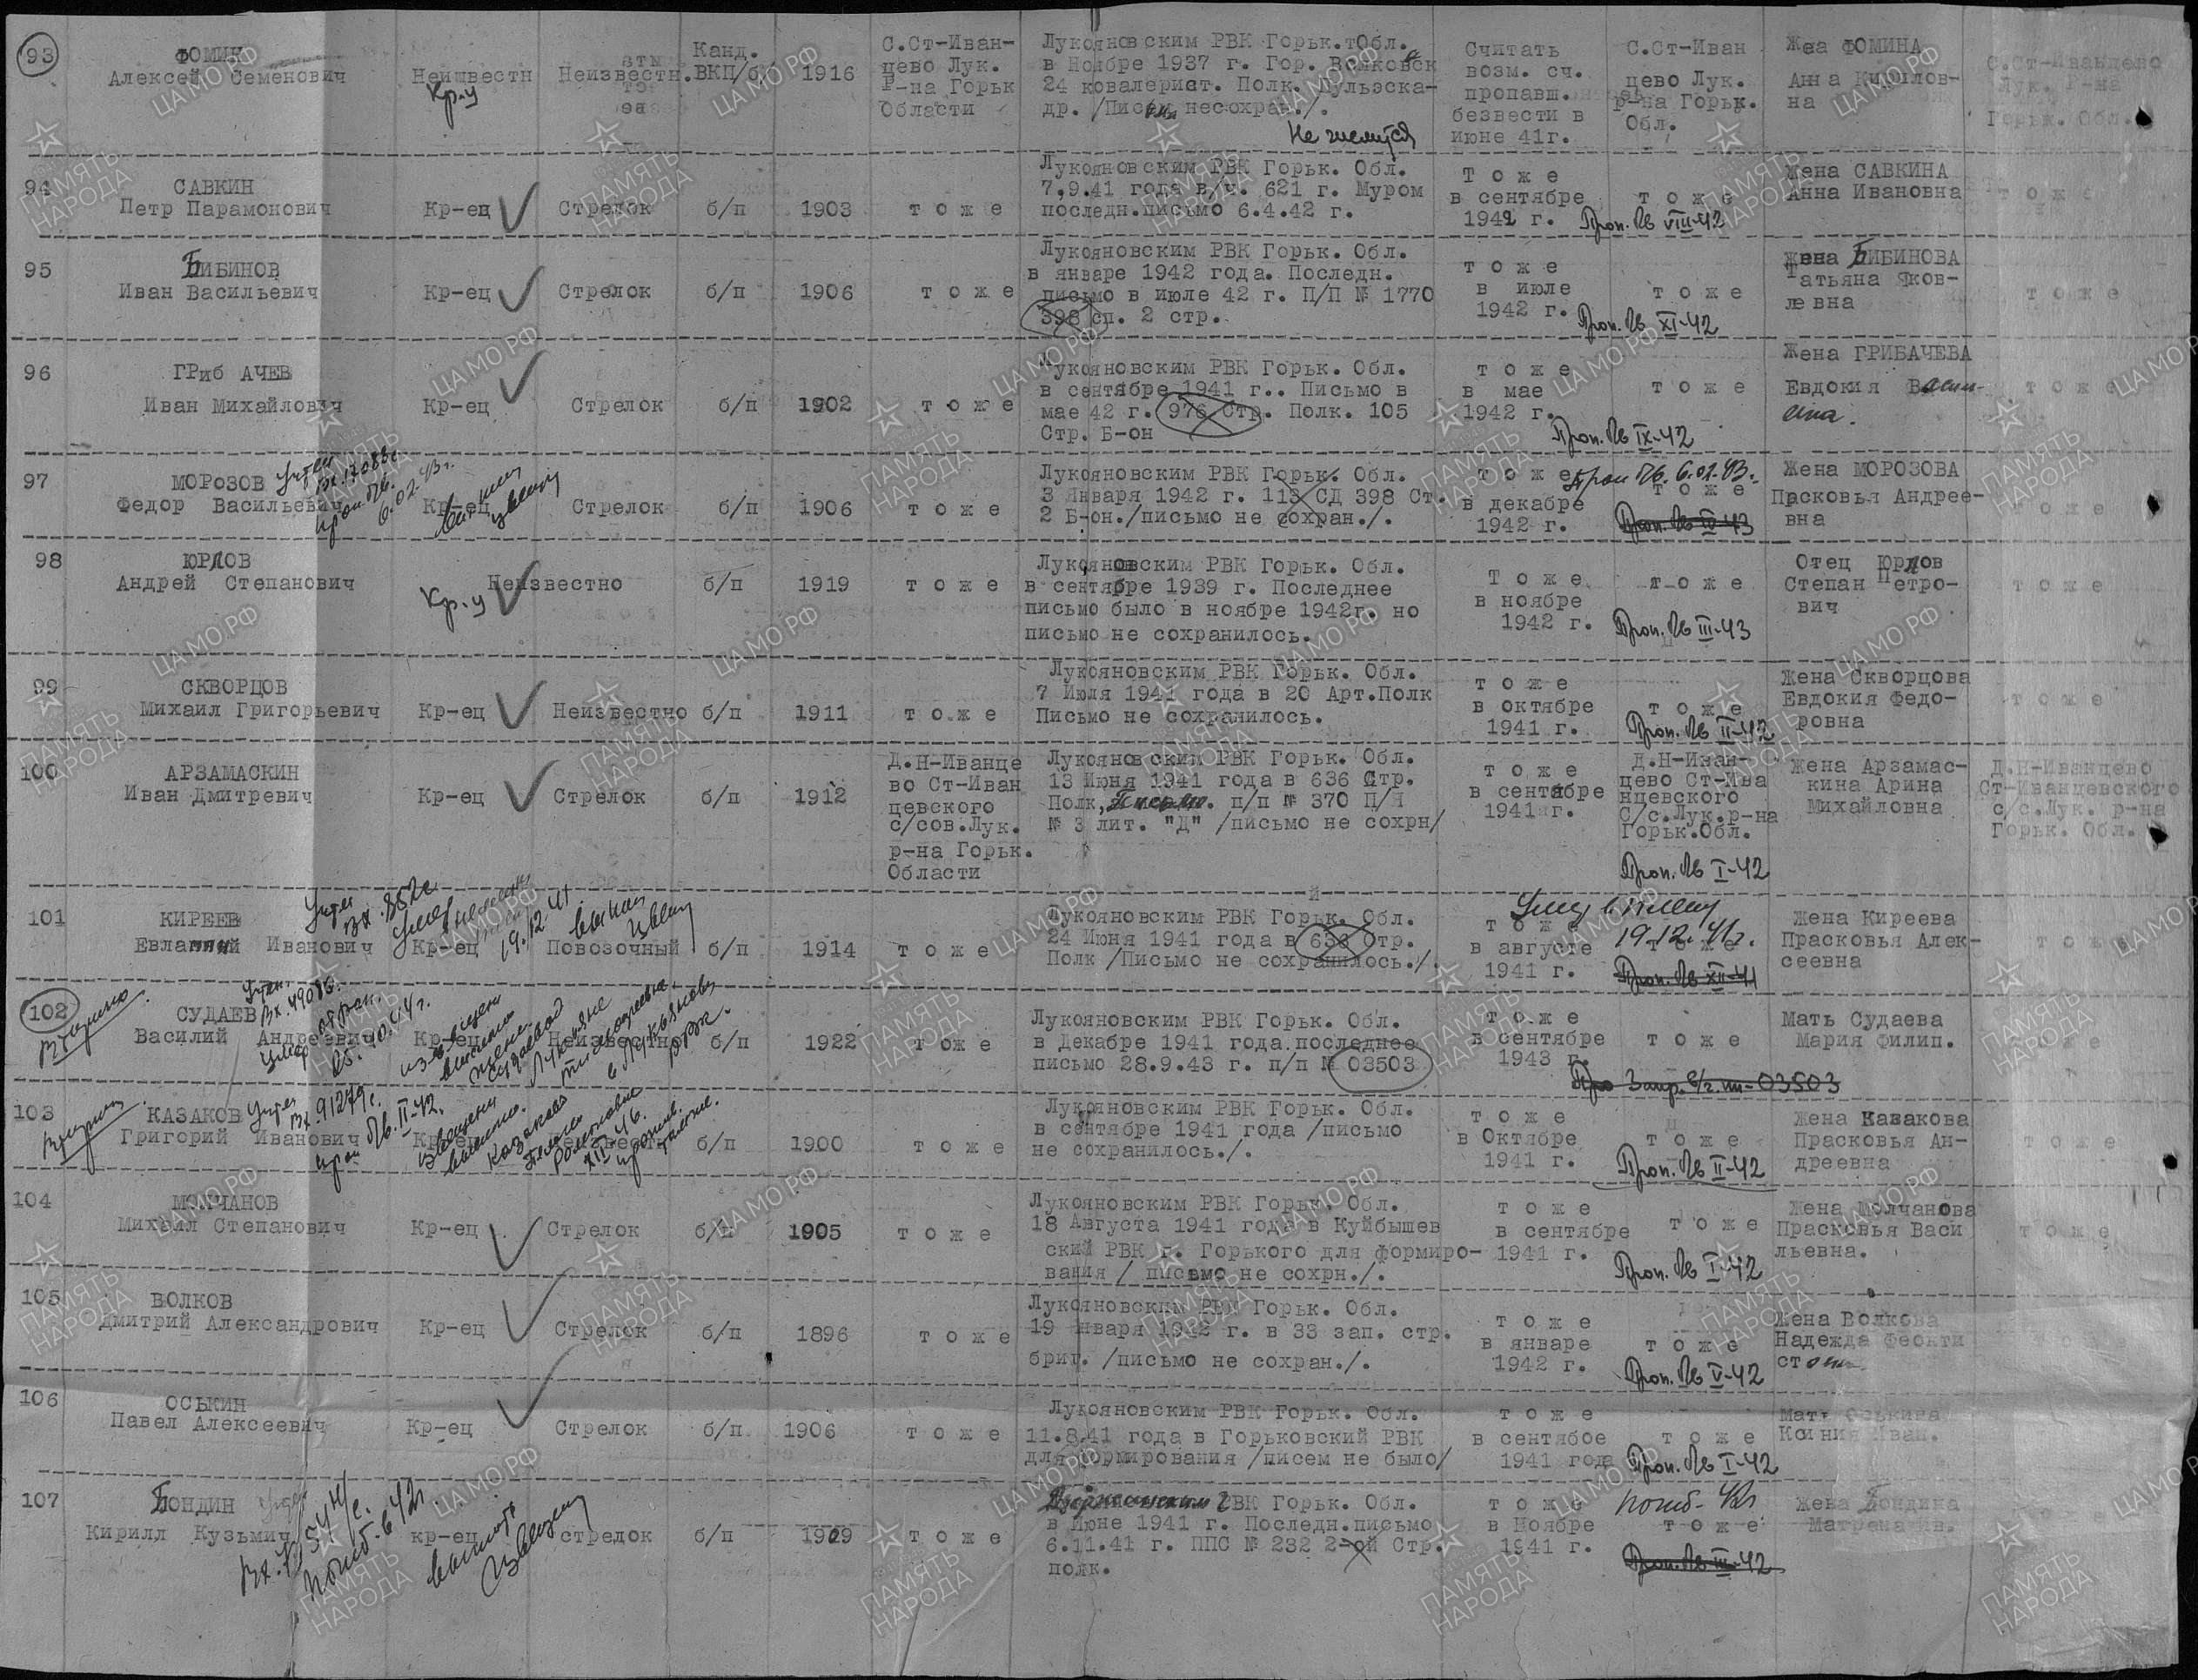 93
ФОМИН
Алексей Семенович
Неизвестн
Кр-ц
Неизвестн.
Канд.
ВКП/б/
1916
С.Ст-Иван-
цево Лук.
Р-на Горьк
Области
Лукояновским РВК Горьк. Обл.
в Ноябре 1937 г. Гор. Волковск
24 ковалерист. Полк. Пульэска-
др. /Письм несохран./.
Считать
возм. сч.
пропавш.
безвести в
июне 41г.
С.Ст-Иван
цево Лук.
р-на Горьк.
Обл.
Жеа ФОМИНА
Анна Кирилов-
на
С.Ст-Иванцево
Лук. Р-на
Горьк. Обл.
94
САВКИН
Петр Парамонович
Кр-ец
Стрелок
б/п
1903
т о ж е
Лукояновским РВК Горьк. Обл.
7.9.41 года в/ч. 621 г. Муром
последн.письмо 6.4.42 г.
Т о ж е
в сентябре
1942 г.
т о ж е
Проп. бв VIII-42
Жена САВКИНА
Анна Ивановна
т о ж е
95
БИБИНОВ
Иван Васильевич
Кр-ец
Стрелок
б/п
1906
т о ж е
Лукояновским РВК Горьк. Обл.
в январе 1942 года. Последн.
письмо в июле 42 г. П/П № 1770
398 сп. 2 стр.
т о ж е
в июле
1942 г.
т о ж е
Проп. бв XI-42
Жена БИБИНОВА
Татьяна Яков-
левна
т о ж е
96
ГРиб АЧЕВ
Иван Михайлович
Кр-ец
Стрелок
б/п
1902
т о ж е
Лукояновским РВК Горьк. Обл.
в сентябре 1941 г.. Письмо в
мае 42 г. 976 Стр. Полк. 105
Стр. Б-он
т о ж е
в мае
1942 г.
т о ж е
Проп. бв IX-42
Жена ГРИБАЧЕВА
Евдокия Васил-
евна.
т о ж е
97
МОРОЗОВ
Федор Васильевич
Учтен
вх. 17083с
проп. бв.
6.02.43г.
Кр-ец
Стрелок
б/п
1906
т о ж е
Лукояновским РВК Горьк. Обл.
3 Января 1942 г. 113 СД 398 Ст.
2 Б-он./письмо не сохран./.
т о ж е
в декабре
1942 г.
Проп бв. 6.02.43г.
т о ж е
Проп. бв III-43
Жена МОРОЗОВА
Прасковья Андрее-
вна
т о ж е
98
ЮРЛОВ
Андрей Степанович
Кр-ц
Неизвестно
б/п
1919
т о ж е
Лукояновским РВК Горьк. Обл.
в сентябре 1939 г. Последнее
письмо было в ноябре 1942г. но
письмо не сохранилось.
Т о ж е
в ноябре
1942 г.
т о ж е
Проп. бв III-43
Отец Юрлов
Степан Петро-
вич
т о ж е
99
СКВОРЦОВ
Михаил Григорьевич
Кр-ец
Неизвестно
б/п
1911
т о ж е
Лукояновским РВК Горьк. Обл.
7 Июля 1941 года в 20 Арт.Полк
Письмо не сохранилось.
т о ж е
в октябре
1941 г.
т о ж е
Проп. бв II-42
Жена Скворцова
Евдокия Федо-
ровна
т о ж е
100
АРЗАМАСКИН
Иван Дмитревич
Кр-ец
Стрелок
б/п
1912
Д.Н-Иванце
во Ст-Иван
цевского
с/сов.Лук.
р-на Горьк.
Области
Лукояновским РВК Горьк. Обл.
13 Июня 1941 года в 636 Стр.
Полк, п/п № 370 П/Я
№ 3 лит. "Д" /письмо не сохрн/
т о ж е
в сентябре
1941 г.
Д.Н-Иван-
цево Ст-Ива
нцевского
С/с.Лук.р-на
Горьк.Обл.
Проп. бв I-42
Жена Арзамас-
кина Арина
Михайловна
Д.Н-Иванцево
Ст-Иванцевского
с/с.Лук. р-на
Горьк. Обл.
101
КИРЕЕВ
Евлампий Иванович
Учтен
вх. 882с
19.12.41
Кр-ец
Повозочный
б/п
1914
т о ж е
Лукояновским РВК Горьк. Обл.
24 Июня 1941 года в 636 Стр.
Полк /Письмо не сохранилось./.
т о ж е
в августе
1941 г.
19.12.41г.
т о ж е
Проп. бв XII-41
Жена Киреева
Прасковья Алек-
сеевна
т о ж е
102
СУДАЕВ
Василий Андреевич
Кр-ец
Неизвестно
б/п
1922
т о ж е
Лукояновским РВК Горьк. Обл.
в Декабре 1941 года.последнее
письмо 28.9.43 г. п/п № 03503
т о ж е
в сентябре
1943 г.
т о ж е
Мать Судаева
Мария Филип.
103
КАЗАКОВ
Григорий Иванович
Учтен
вх. 91279с.
проп бв. II-42.
Кр-ец
Неизвестн
б/п
1900
т о ж е
Лукояновским РВК Горьк. Обл.
в сентябре 1941 года /письмо
не сохранилось./.
т о ж е
в Октябре
1941 г.
т о ж е
Проп. бв II-42
Жена Казакова
Прасковья Ан-
дреевна
т о ж е
104
МОЛЧАНОВ
Михаил Степанович
Кр-ец
Стрелок
б/п
1905
т о ж е
Лукояновским РВК Горьк. Обл.
18 Августа 1941 года в Куйбышев
ский РВК г. Горького для формиро-
вания / письмо не сохрн./.
т о ж е
в сентябре
1941 г.
т о ж е
Проп. бв I-42
Жена Молчанова
Прасковья Васи
льевна.
т о ж е
105
ВОЛКОВ
Дмитрий Александрович
Кр-ец
Стрелок
б/п
1896
т о ж е
Лукояновским РВК Горьк. Обл.
19 января 1942 г. в 33 зап. стр.
бриг. /письмо не сохран./.
т о ж е
в январе
1942 г.
т о ж е
Проп. бв V-42
Жена Волкова
Надежда Феокти
106
ОСЬКИН
Павел Алексеевич
Кр-ец
Стрелок
б/п
1906
т о ж е
Лукояновским РВК Горьк. Обл.
11.8.41 года в Горьковский РВК
для формирования /писем не было/
т о ж е
в сентябое
1941 года
т о ж е
Проп. бв I-42
Мать Оськина
Ксиния Иван.
107
БОНДИН
Кирилл Кузьмич
кр-ец
стрелок
б/п
1909
т о ж е
РВК Горьк. Обл.
в Июне 1941 г. Последн.письмо
6.11.41 г. ППС № 232 2-ой Стр.
полк.
т о ж е
в Ноябре
1941 г.
т о ж е
Проп. бв III-42
Жена Бондина
Матрена Ив.